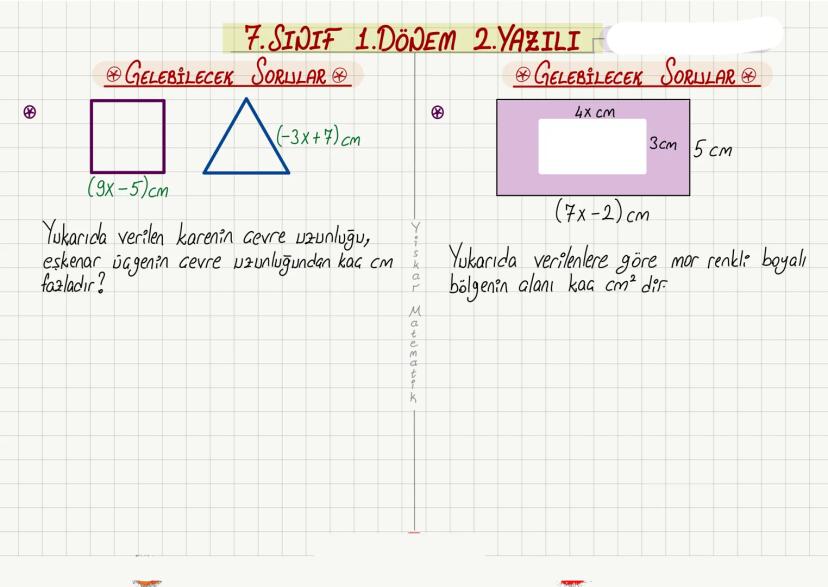 7.SINIF 1.DÖNEM 2.YAZILI
GELEBİLECEK SORULAR
(-3x+7)cm
(9x-5)cm
Yukarıda verilen karenin çevre uzunluğu,
eşkenar üçgenin çevre uzunluğundan kaç cm
fazladır?
Yıskar Matematik
GELEBİLECEK SORULAR
4x cm
3cm
5 cm
(7x-2)cm
Yukarıda verilenlere göre mor renkli boyalı
bölgenin alanı kaç cm² dir.